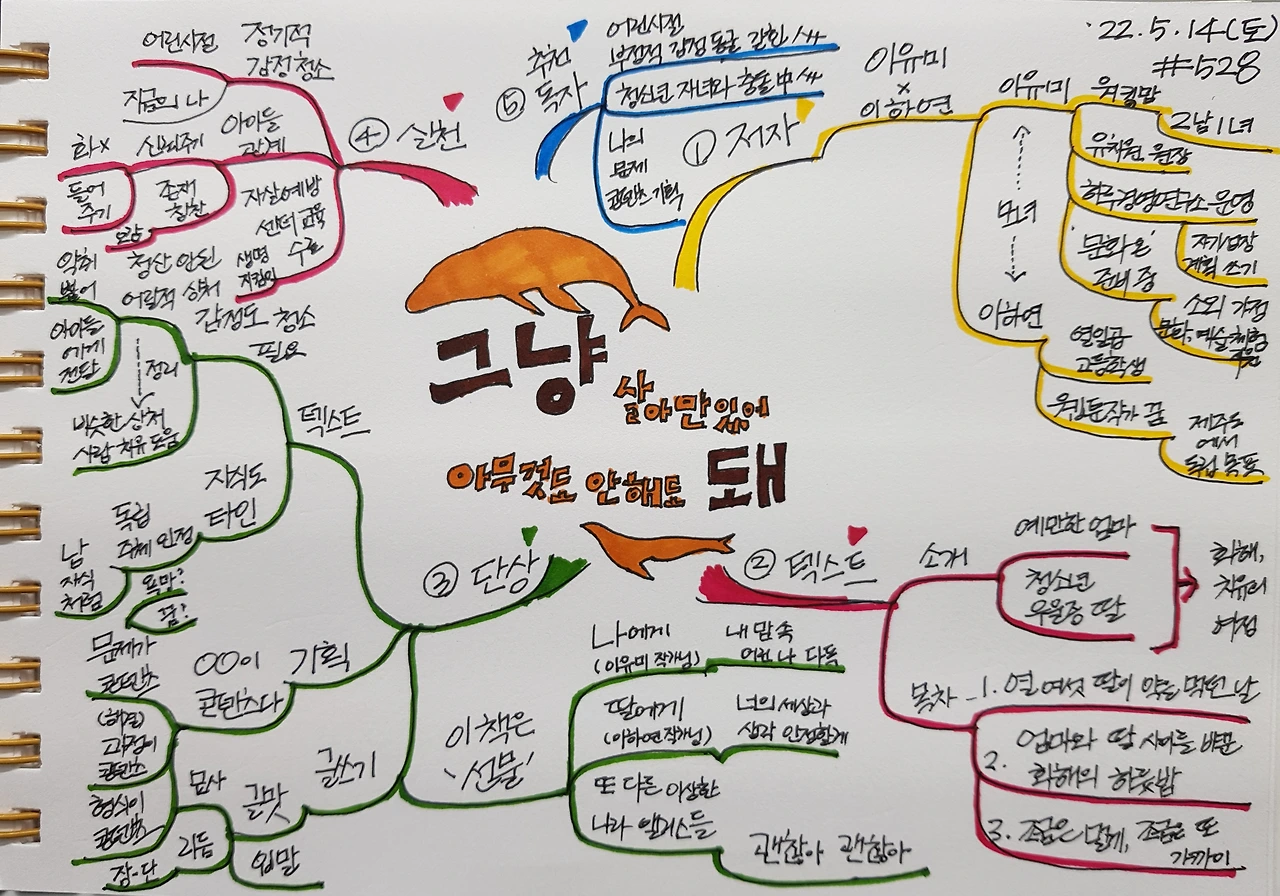 '22.5.14(토)
#528
그냥
살아만 있어
아무것도 안해도 돼
① 저자
이유미
×
이하연
이유미
워킹맘
2남 1녀
유치원 원장
하루경영연구소 운영
자기성장
계획 쓰기
'문화온'
준비 중
소외 가정
문화, 예술체험
지원
모녀
이하연
열일곱
고등학생
웹툰작가 꿈
제주도
에서
독립 목표
② 텍스트
소개
예민한 엄마
청소년
우울증 딸
화해,
치유의
여정
목차
1. 열여섯 딸이 약을 먹던 날
2. 엄마와 딸 사이를 바꾼
화해의 하룻밤
3. 조금은 멀게, 조금은 또
가까이
③ 단상
텍스트
청산 안된
어릴적 상처
감정도 청소
필요
악취
뿜어
아이들
에게
전달
정리
비슷한 상처
사람 치유 도움
자식도
타인
독립
주체 인정
남
자식
처럼
욕망?
꿈?
기획
○○이
콘텐츠다
문제가
콘텐츠
(해결)
과정이
콘텐츠
형식이
콘텐츠
글쓰기
글맛
묘사
리듬
장-단
입말
이 책은
'선물'
나에게
(이유미 작가님)
내 맘속
어린 나 다독
딸에게
(이하연 작가님)
너의 세상과
생각 인정할게
또 다른 이상한
나라 앨리스들
괜찮아 괜찮아
④ 실천
정기적
감정 청소
어린시절
지금의 나
아이들
관계
신뢰주기
화×
들어
주기
존재
칭찬
공감
자살예방
센터 교육
수료
생명
지킴이
⑤ 추천
독자
어린시절
부정적 감정 동굴 갇힌 분
청소년 자녀와 충돌 中 분
나의
문제
콘텐츠 기획